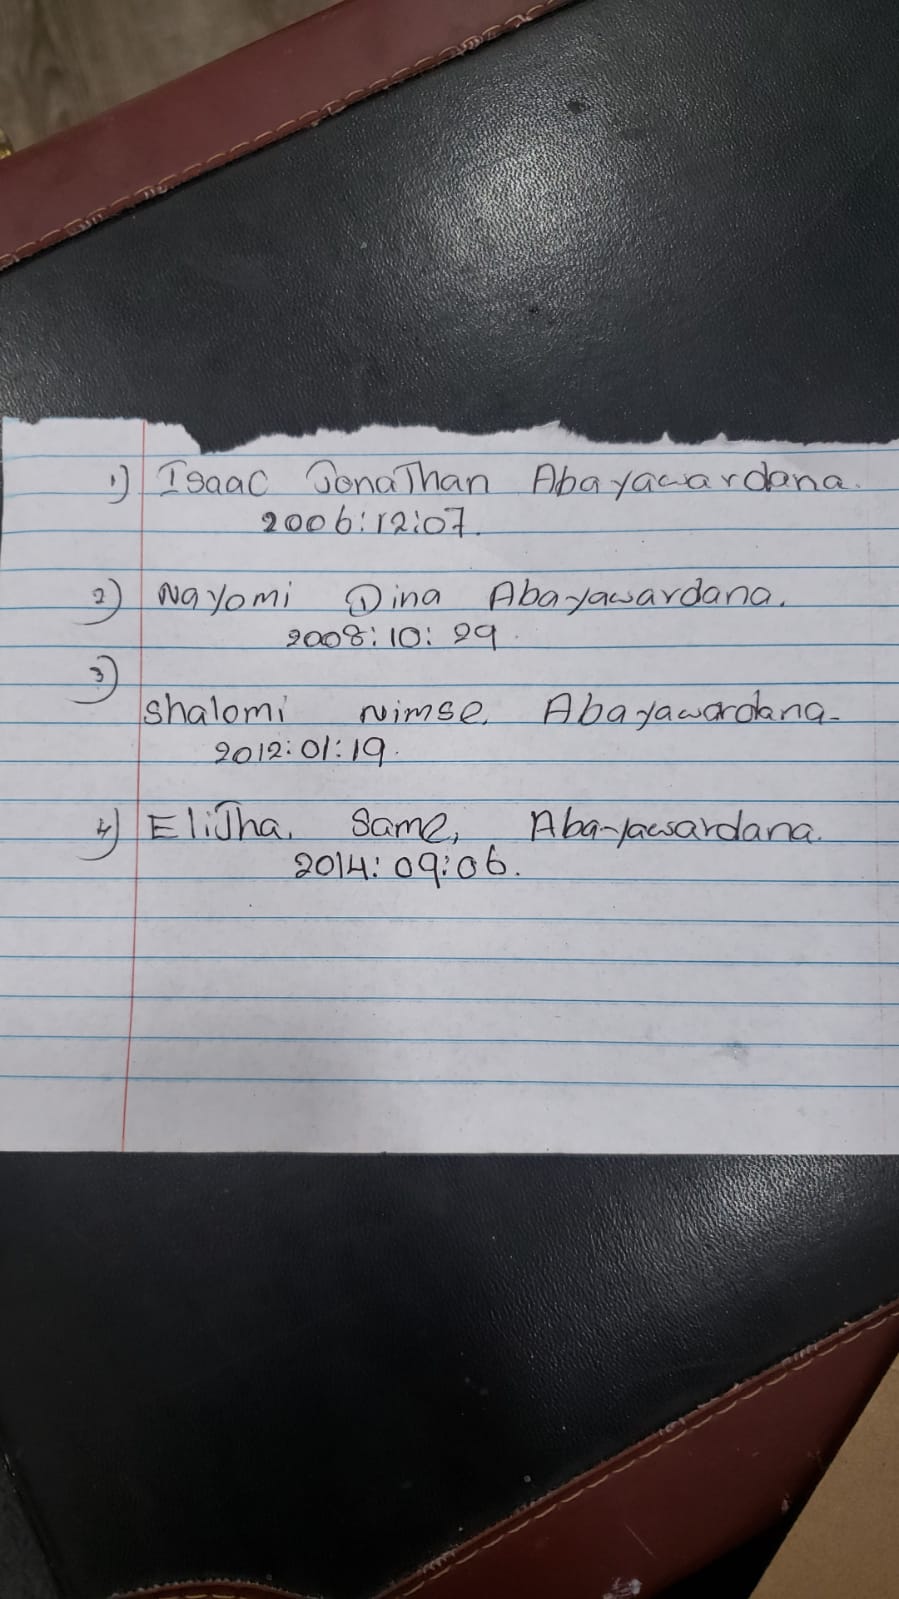 1) Isaac JonaThan Abayawardana.
2006:12:07.
2) Nayomi Dina Abayawardana.
2008:10:29.
3)
Shalomi Nimse. Abayawardana-
2012:01:19.
4) EliJha. Same, Abayawardana.
2014:09:06.